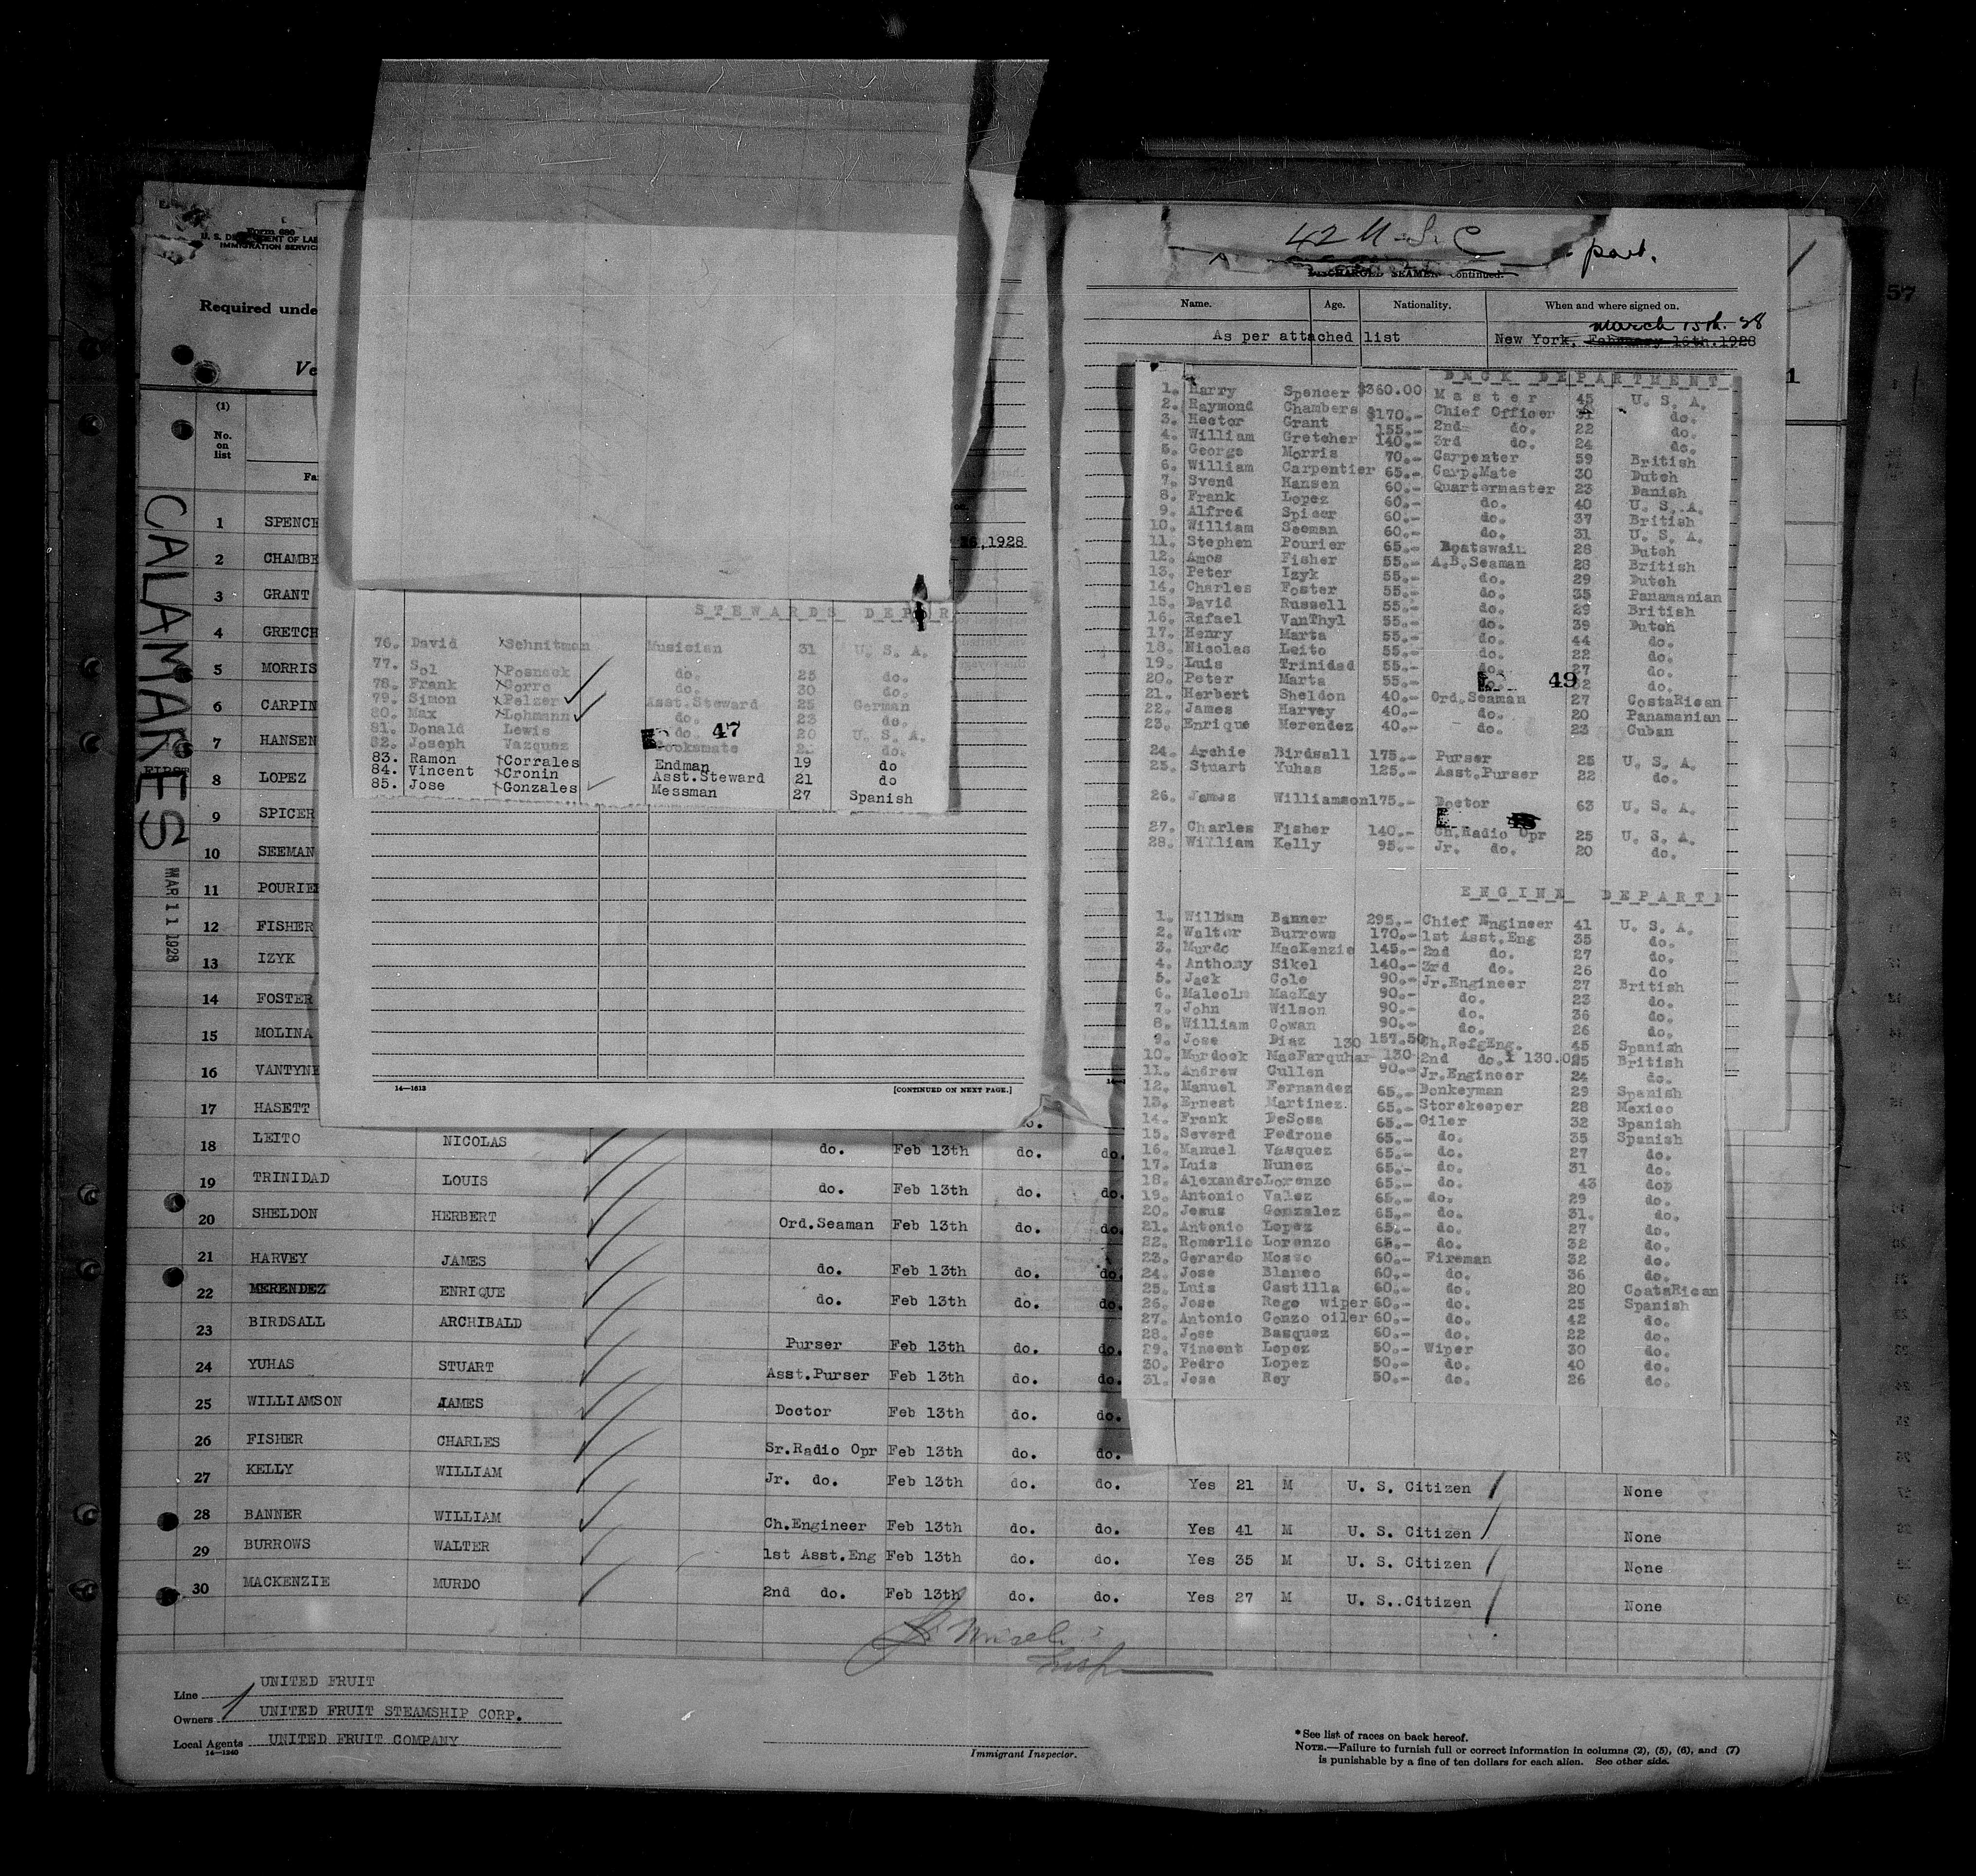 Form 680
U. S. DEPARTMENT OF LAB
IMMIGRATION SERVIC
Required unde
Ve
(1)
No.
on
list
Fa
CALAMARES
MAR 11 1928
1 SPENCE
2 CHAMBE
3 GRANT
4 GRETCH
5 MORRIS
6 CARPIN
7 HANSEN
8 LOPEZ
9 SPICER
10 SEEMAN
11 POURIER
12 FISHER
13 IZYK
14 FOSTER
15 MOLINA
16 VANTYNE
17 HASETT
18 LEITO NICOLAS do. Feb 13th do. do.
19 TRINIDAD LOUIS do. Feb 13th do. do.
20 SHELDON HERBERT Ord.Seaman Feb 13th do. do.
21 HARVEY JAMES do. Feb 13th do. do.
22 MERENDEZ ENRIQUE do. Feb 13th do. do.
23 BIRDSALL ARCHIBALD Purser Feb 13th do. do.
24 YUHAS STUART Asst.Purser Feb 13th do. do.
25 WILLIAMSON JAMES Doctor Feb 13th do. do.
26 FISHER CHARLES Sr.Radio Opr Feb 13th do. do.
27 KELLY WILLIAM Jr. do. Feb 13th do. do. Yes 21 M U. S. Citizen None
28 BANNER WILLIAM Ch.Engineer Feb 13th do. do. Yes 41 M U. S. Citizen None
29 BURROWS WALTER 1st Asst.Eng Feb 13th do. do. Yes 35 M U. S. Citizen None
30 MACKENZIE MURDO 2nd do. Feb 13th do. do. Yes 27 M U. S..Citizen None
Insp
Line UNITED FRUIT
Owners UNITED FRUIT STEAMSHIP CORP.
Local Agents UNITED FRUIT COMPANY
14—1240
Immigrant Inspector.
*See list of races on back hereof.
NOTE.—Failure to furnish full or correct information in columns (2), (5), (6), and (7)
is punishable by a fine of ten dollars for each alien. See other side.
16,1928
STEWARDS DEPAR
76. David Schnitman Musician 31 U. S. A.
77. Sol Posnack do. 25 do.
78. Frank Corro do. 30 do.
79. Simon Pelzer Asst.Steward 25 German
80. Max Lohmann do. 23 do.
81. Donald Lewis do. 20 U. S. A.
82. Joseph Vazquez Cooksmate do.
47
83. Ramon Corrales Endman 19 do
84. Vincent Cronin Asst.Steward 21 do
85. Jose Gonzales Messman 27 Spanish
14—1613 [CONTINUED ON NEXT PAGE.]
42 U.S.C part.
DISCHARGED SEAMEN Continued.
Name. Age. Nationality. When and where signed on.
March 15th. 28
As per attached list New York, February 16th.1928
DECK DEPARTMENT
1. Harry Spencer $360.00 Master 45 U. S. A.
2. Raymond Chambers $170.- Chief Officer 31 do.
3. Hector Grant 155.- 2nd do. 22 do.
4. William Gretcher 140.- 3rd do. 24 do.
5. George Morris 70.- Carpenter 59 British
6. William Carpentier 65.- Carp.Mate 30 Dutch
7. Svend Hansen 60.- Quartermaster 23 Danish
8. Frank Lopez 60.- do. 40 U. S. A.
9. Alfred Spicer 60.- do. 37 British
10. William Seeman 60.- do. 31 U. S. A.
11. Stephen Pourier 65.- Boatswain 28 Dutch
12. Amos Fisher 55.- A.B.Seaman 28 British
13. Peter Izyk 55.- do. 29 Dutch
14. Charles Foster 55.- do. 35 Panamanian
15. David Russell 55.- do. 29 British
16. Rafael VanThyl 55.- do. 39 Dutch
17. Henry Marta 55.- do. 44 do.
18. Nicolas Leito 55.- do. 22 do.
19. Luis Trinidad 55.- do. 27 do.
20. Peter Marta 55.- do. 32 do.
49
21. Herbert Sheldon 40.- Ord.Seaman 27 CostaRican
22. James Harvey 40.- do. 20 Panamanian
23. Enrique Merendez 40.- do. 23 Cuban
24. Archie Birdsall 175.- Purser 25 U. S. A.
25. Stuart Yuhas 125.- Asst.Purser 22 do.
26. James Williamson175.- Doctor 63 U. S. A.
27. Charles Fisher 140.- Ch.Radio Opr 25 U. S. A.
28. William Kelly 95.- Jr. do. 20 do.
ENGINE DEPARTM
1. William Banner 295.- Chief Engineer 41 U. S. A.
2. Walter Burrows 170.- 1st Asst.Eng 35 do.
3. Murdo MacKenzie 145.- 2nd do. 27 do.
4. Anthony Sikel 140.- 3rd do. 26 do
5. Jack Cole 90.- Jr.Engineer 27 British
6. Malcolm MacKay 90.- do. 23 do.
7. John Wilson 90.- do. 36 do.
8. William Cowan 90.- do. 26 do.
9. Jose Diaz 130 157.50 Ch.RefgEng. 45 Spanish
10. Murdock MacFarquhar 130 2nd do. 130.00 25 British
11. Andrew Cullen 90.- Jr.Engineer 24 do.
12. Manuel Fernandez 65.- Donkeyman 29 Spanish
13. Ernest Martinez 65.- Storekeeper 28 Mexico
14. Frank DeSosa 65.- Oiler 32 Spanish
15. Severd Pedrone 65.- do. 35 Spanish
16. Manuel Vasquez 65.- do. 27 do.
17. Luis Nunez 65.- do. 31 do.
18. AlexandroLorenzo 65.- do. 43 do.
19. Antonio Valez 65.- do. 29 do.
20. Jesus Gonzalez 65.- do. 31. do.
21. Antonio Lopez 65.- do. 27 do.
22. Romerlio Lorenzo 65.- do. 32 do.
23. Gerardo Mosso 60.- Fireman 32 do.
24. Jose Blanco 60.- do. 36 do.
25. Luis Castilla 60.- do. 20 CostaRican
26. Jose Rego wiper 60.- do. 25 Spanish
27. Antonio Gonzo oiler 60.- do. 42 do.
28. Jose Basquez 60.- do. 22 do.
29. Vincent Lopez 50.- Wiper 30 do.
30. Pedro Lopez 50.- do. 40 do.
31. Jose Rey 50.- do. 26 do.
57
1